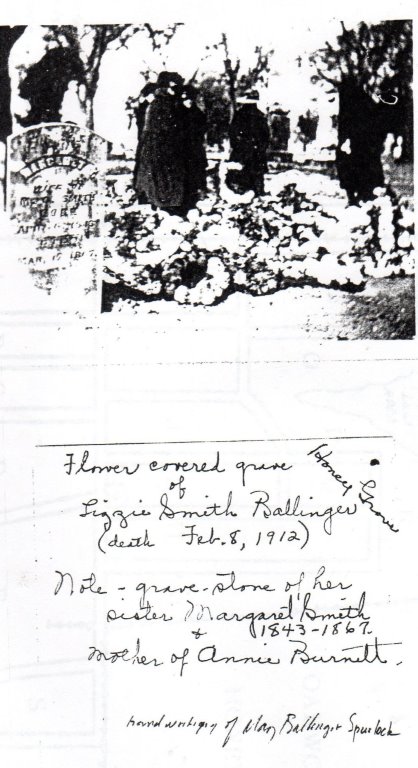 WIFE OF
BORN
DIED
Flower covered grave
of
Lizzie Smith Ballinger
(death Feb. 8, 1912)
Honey Grove
Note - grave-stone of her
sister Margaret Smith
& 1843-1867.
Mother of Annie Burnett.
handwriting of Mary Ballinger Spurlock